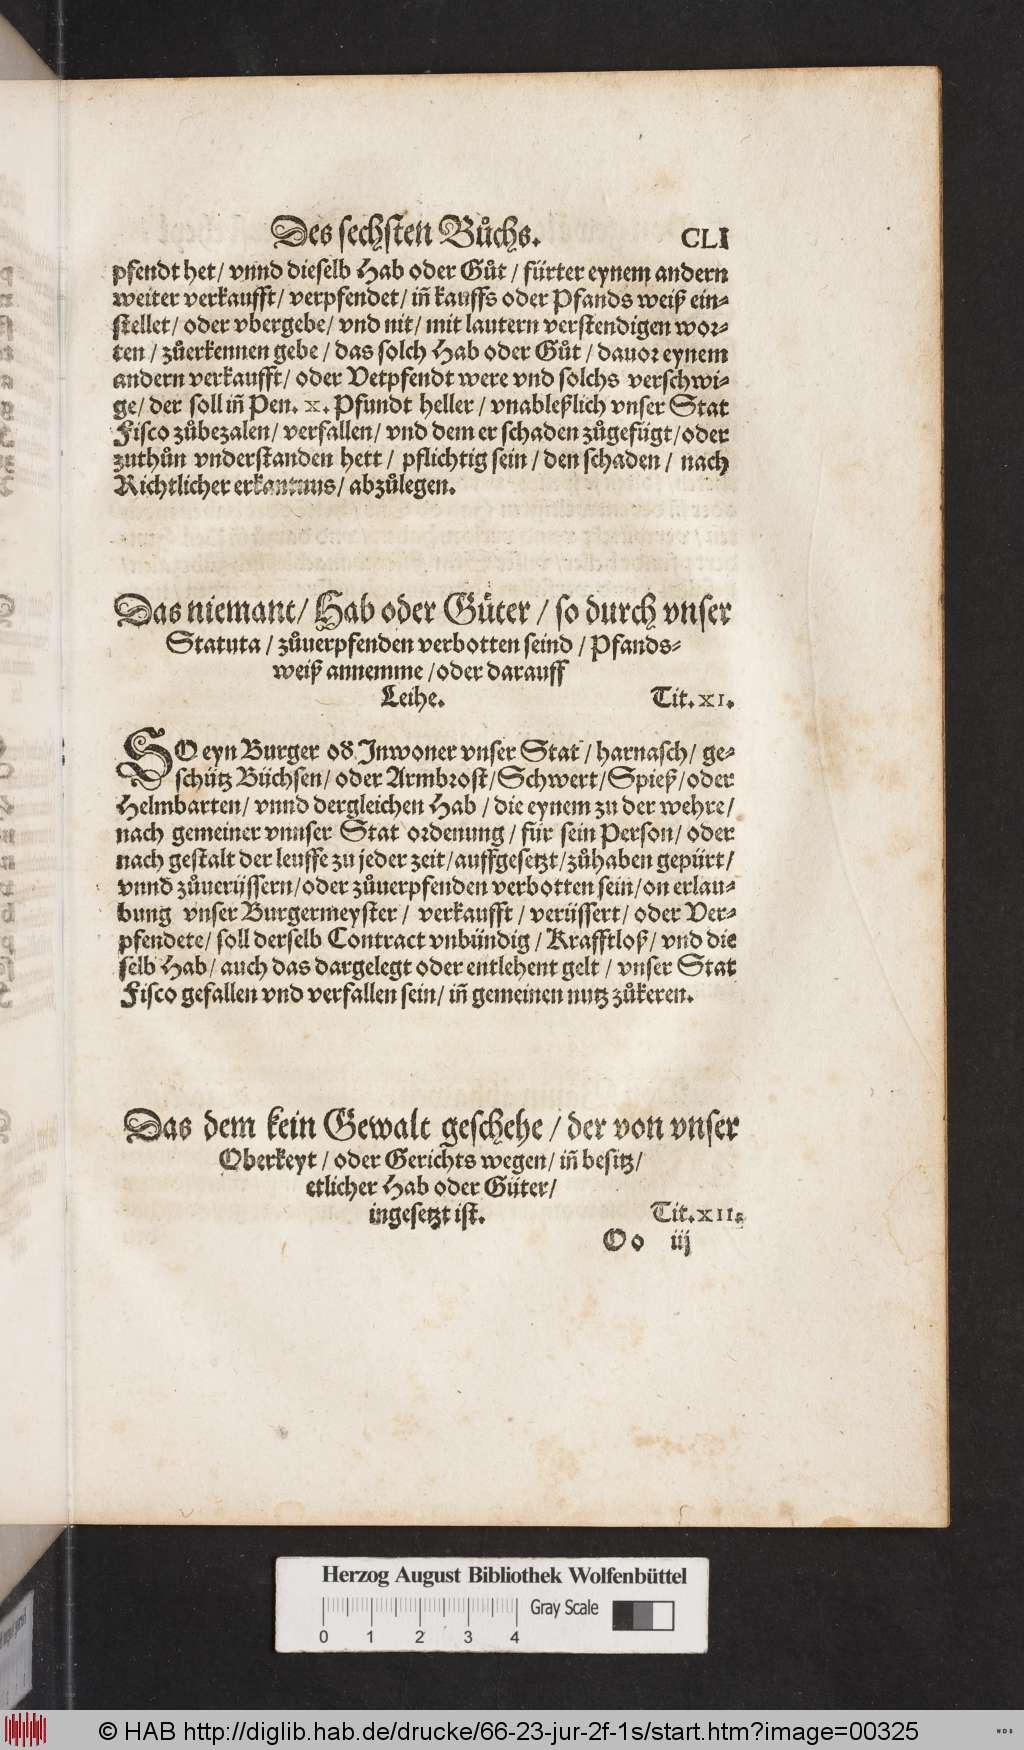 Des sechsten Bůchs. CLI
pfendt het/ vnnd dieselb Hab oder Gůt / fürter eynem andern
weiter verkaufft/ verpfendet/ in̄ kauffs oder Pfands weiß ein⸗
stellet/ oder vbergebe/ vnd nit/ mit lautern verstendigen wor⸗
ten / zůerkennen gebe / das solch Hab oder Gůt / dauor eynem
andern verkaufft/ oder Vetpfendt were vnd solchs verschwi⸗
ge/ der soll in̄ Pen. x. Pfundt heller / vnableßlich vnser Stat
Fisco zůbezalen/ verfallen/ vnd dem er schaden zůgefügt/oder
zuthůn vnderstanden hett / pflichtig sein / den schaden / nach
Richtlicher erkantnus/ abzůlegen.
Das niemant/ Hab oder Gůter / so durch vnser
Statuta / zůuerpfenden verbotten seind / Pfands⸗
weiß annemme /oder darauff
Leihe. Tit. XI.
SO eyn Burger oď Inwoner vnser Stat / harnasch/ ge⸗
schütz Büchsen/ oder Armbrost/Schwert/Spieß/oder
Helmbarten/ vnnd dergleichen Hab / die eynem zu der wehre/
nach gemeiner vnnser Stat ordenung / für sein Person/ oder
nach gestalt der leuffe zu jeder zeit/auffgesetzt/zůhaben gepürt/
vnnd zůuerüssern/oder zůuerpfenden verbotten sein/on erlau⸗
bung vnser Burgermeyster / verkaufft / verüssert/ oder Ver⸗
pfendete/ soll derselb Contract vnbündig / Krafftloß/ vnd die
selb Hab/ auch das dargelegt oder entlehent gelt / vnser Stat
Fisco gefallen vnd verfallen sein/ in̄ gemeinen nutz zůkeren.
Das dem kein Gewalt geschehe / der von vnser
Oberkeyt / oder Gerichts wegen/ in̄ besitz/
etlicher Hab oder Güter/
ingesetzt ist. Tit. XII.
Oo iij
Herzog August Bibliothek Wolfenbüttel
Gray Scale
0 1 2 3 4
© HAB http://diglib.hab.de/drucke/66-23-jur-2f-1s/start.htm?image=00325